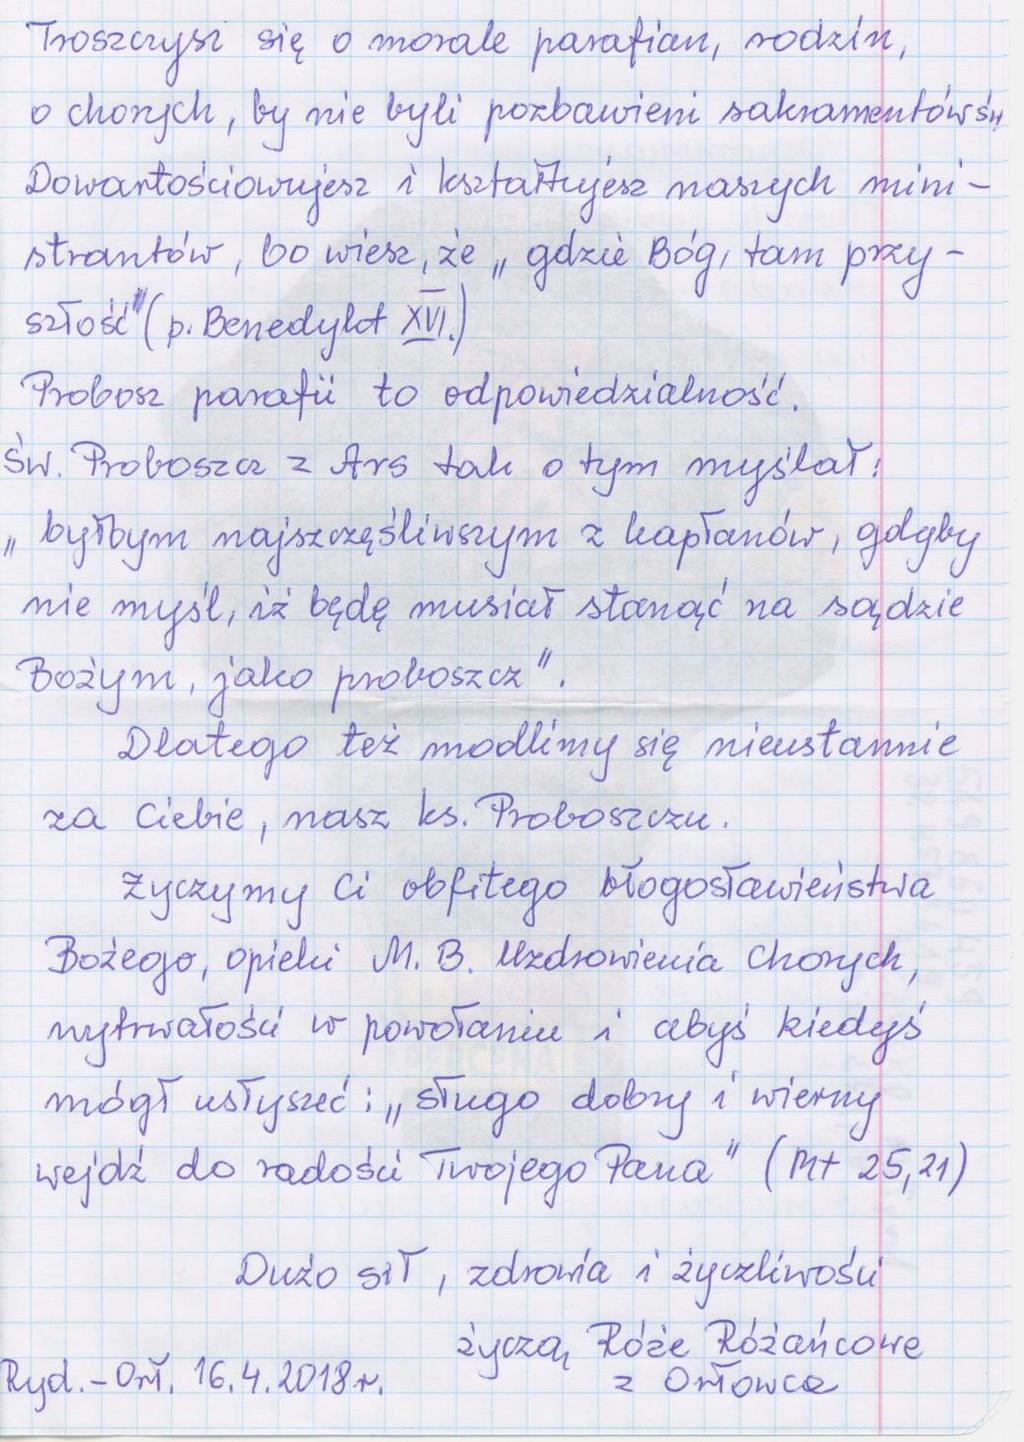 Troszczysz się o morale parafian, rodzin,
o chorych, by nie byli pozbawieni sakramentów św.
Dowartościowujesz i kształtujesz naszych mini-
strantów, bo wiesz, że „gdzie Bóg, tam przy-
szłość" (p. Benedykt XVI.)
Probosz parafii to odpowiedzialność.
Św. Proboszcz z Ars tak o tym myślał:
„byłbym najszczęśliwszym z kapłanów, gdyby
nie myśl, iż będę musiał stanąć na sądzie
Bożym, jako proboszcz".
Dlatego też modlimy się nieustannie
za Ciebie, nasz ks. Proboszczu.
Życzymy Ci obfitego błogosławieństwa
Bożego, opieki M. B. Uzdrowienia Chorych,
wytrwałości w powołaniu i abyś kiedyś
mógł usłyszeć: „sługo dobry i wierny
wejdź do radości Twojego Pana" (Mt 25,21)
Dużo sił, zdrowia i życzliwości
życzą Róże Różańcowe
z Orłowca
Ryd.-Orł. 16.4.2018r.